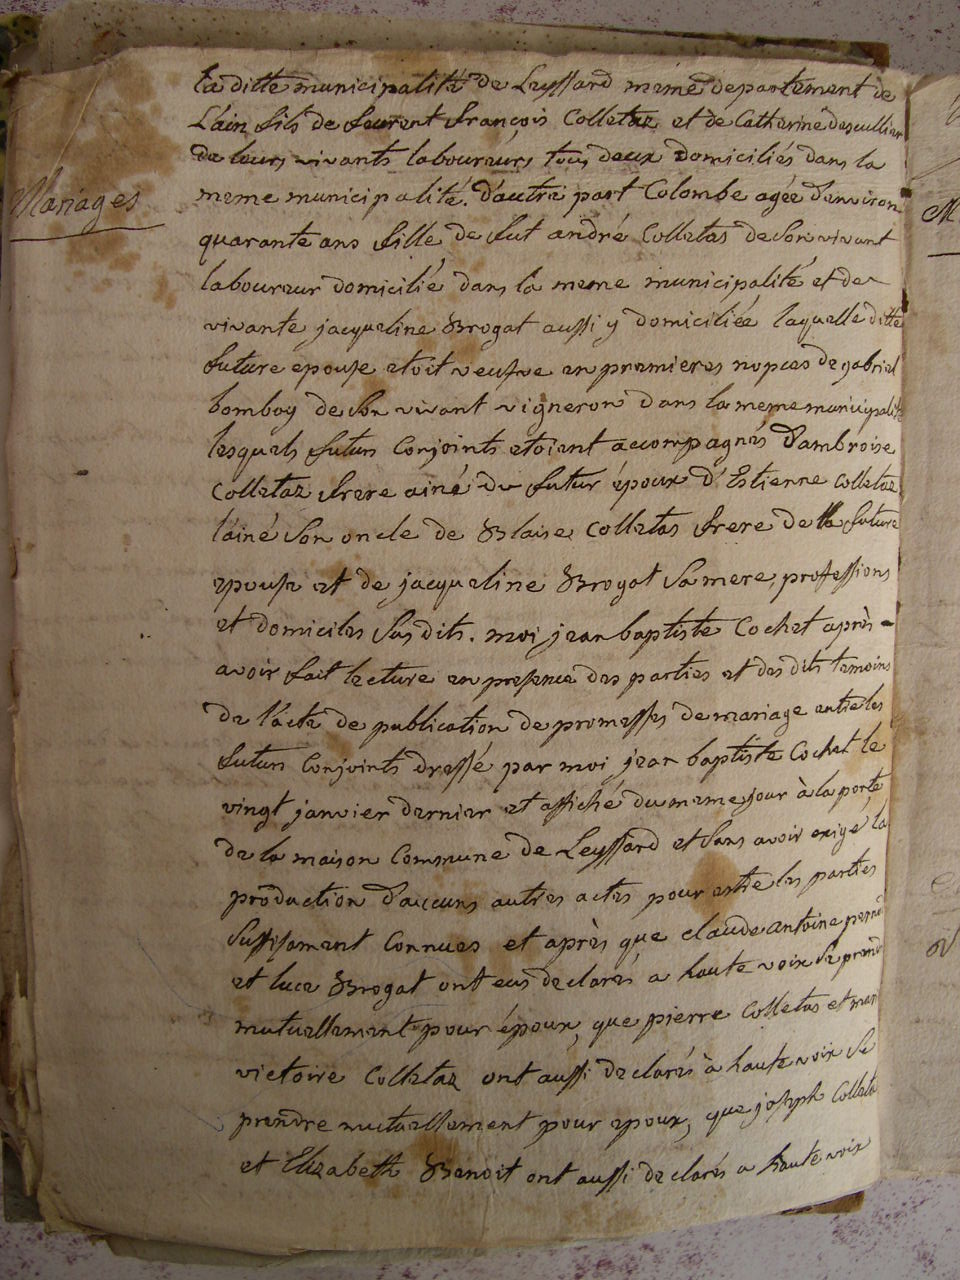 Mariages
la ditte municipalité de Leyssard même departement de
L'ain fils de Laurent françois Colletaz et de Catherine descullier
de leurs vivants laboureurs tous deux domiciliés dans la
meme municipalité. D'autre part Colombe agée d'environ
quarante ans fille de fut andré Colletas de son vivant
laboureur domicilié dans la meme municipalité et de
vivante jacqueline Brogat aussi y domiciliée laquelle ditte
future epouse etoit veufve en premieres nopces de gabriel
bomboy de son vivant vigneron dans la meme municipalité
lesquels futurs Conjoints etoient accompagnés D'ambroise
Colletaz frere ainé du futur époux d'Estienne Colletaz
l'ainé son oncle de Blaise Colletas frere de la future
epouse et de jacqueline Brogat sa mere, professions
et domiciles susdits. moi jean baptiste Cochet après
avoir fait lecture en presence des parties et des dits temoins
de l'acte de publication de promesses de mariage entre les
futurs Conjoints dressé par moi jean baptiste Cochet le
vingt janvier dernier et affiché du meme jour à la porte
de la maison Commune de Leyssard et sans avoir exigé la
production d'aucuns autres actes pour estre les parties
suffisament Connues et après que claude antoine
et luce Brogat ont eus declarés a haute voix se prendre
mutuellement pour époux, que pierre Colletas et
victoire Colletaz ont aussi declarés à haute voix se
prendre mutuellement pour epoux, que joseph Colleta
et Elizabeth Benoit ont aussi declarés a haute voix
M